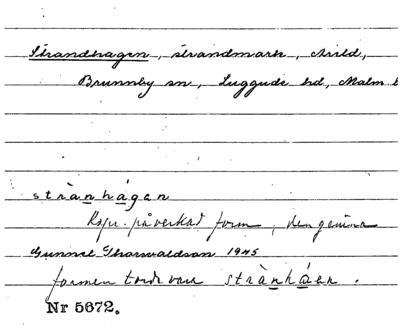 Strandhagen, strandmark, Arild,
Brunnby sn, Luggude hd, Malm
strànhágan
Rspr. påverkad form, den genuina
Gunnel Thorwaldson 1945
formen torde vara strànháen.
Nr 5672.